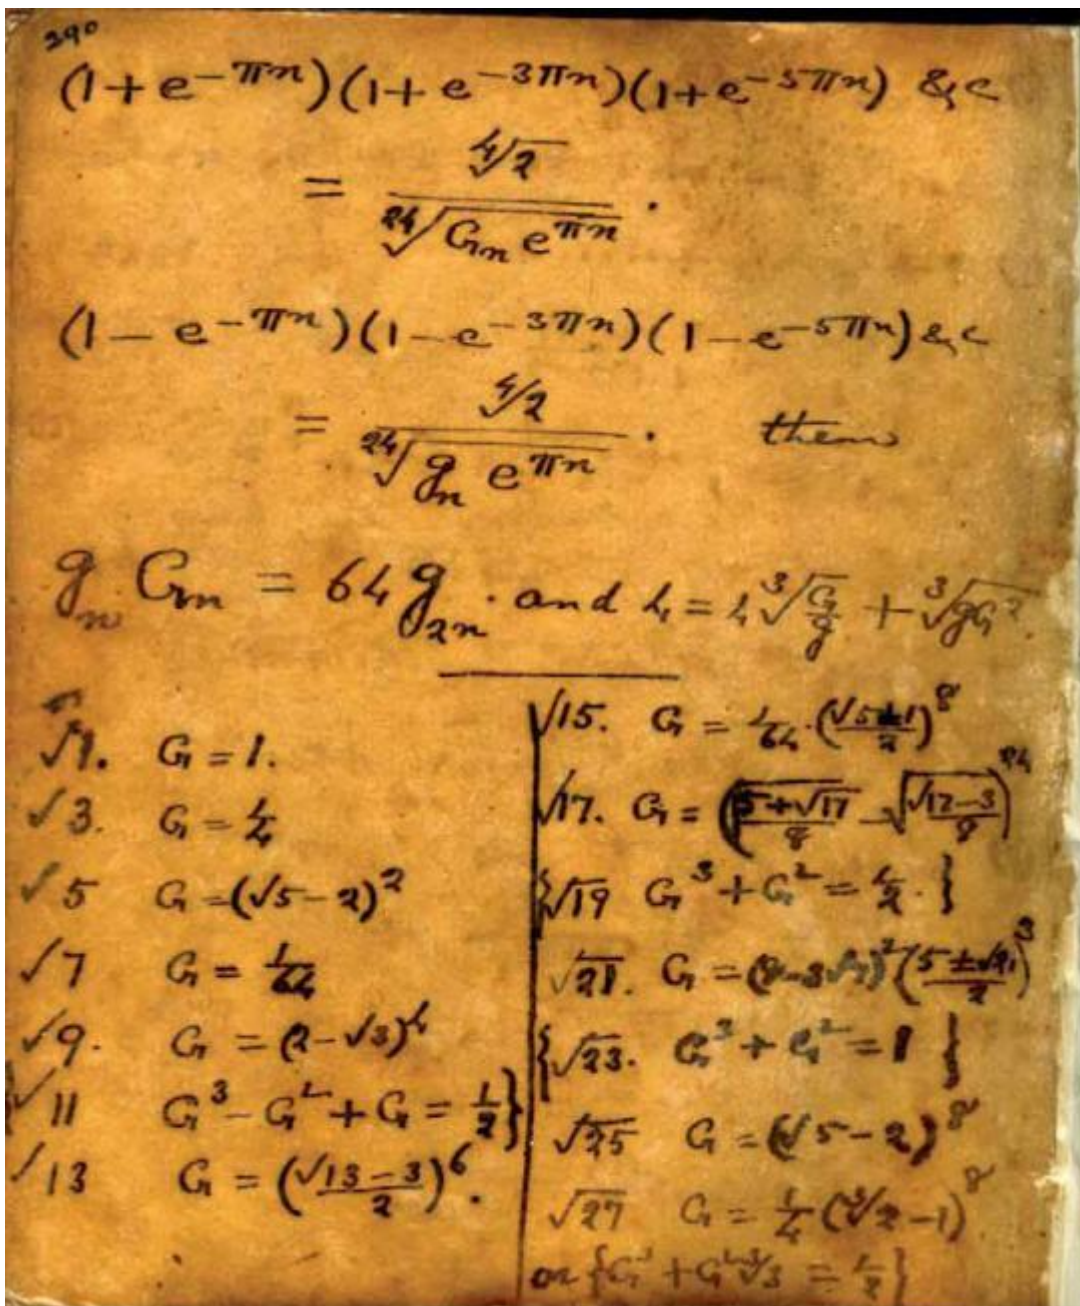 290
(1+e^{-πn})(1+e^{-3πn})(1+e^{-5πn}) &c
= ∜2 / ²⁴√(G_n e^{πn}) .
(1-e^{-πn})(1-e^{-3πn})(1-e^{-5πn}) &c
= ∜2 / ²⁴√(g_n e^{πn}) . then
g_n G_n = 64 g_{2n} . and 4 = 4 ∛(G/g) + ∛(gG²) .
√1. G = 1.
√3. G = 1/4
√5 G = (√5 - 2)^2
√7 G = 1/64
√9. G = (2-√3)^4
{√11 G^3 - G^2 + G = 1/2}
√13 G = ((√13 - 3)/2)^6.
√15. G = 1/64 · ((√5±1)/2)^8
√17. G = (√((5+√17)/8) - √((√17-3)/8))^{24}
{√19 G^3 + G^2 = 1/2 . }
√21. G = (8-3√7)^2 ((5±√21)/2)^3
{√23. G^3 + G^2 = 1 }
√25 G = (√5 - 2)^8
√27 G = 1/4 (∛2 - 1)^8
or {G^3 + G^2 ∛3 = 1/2}